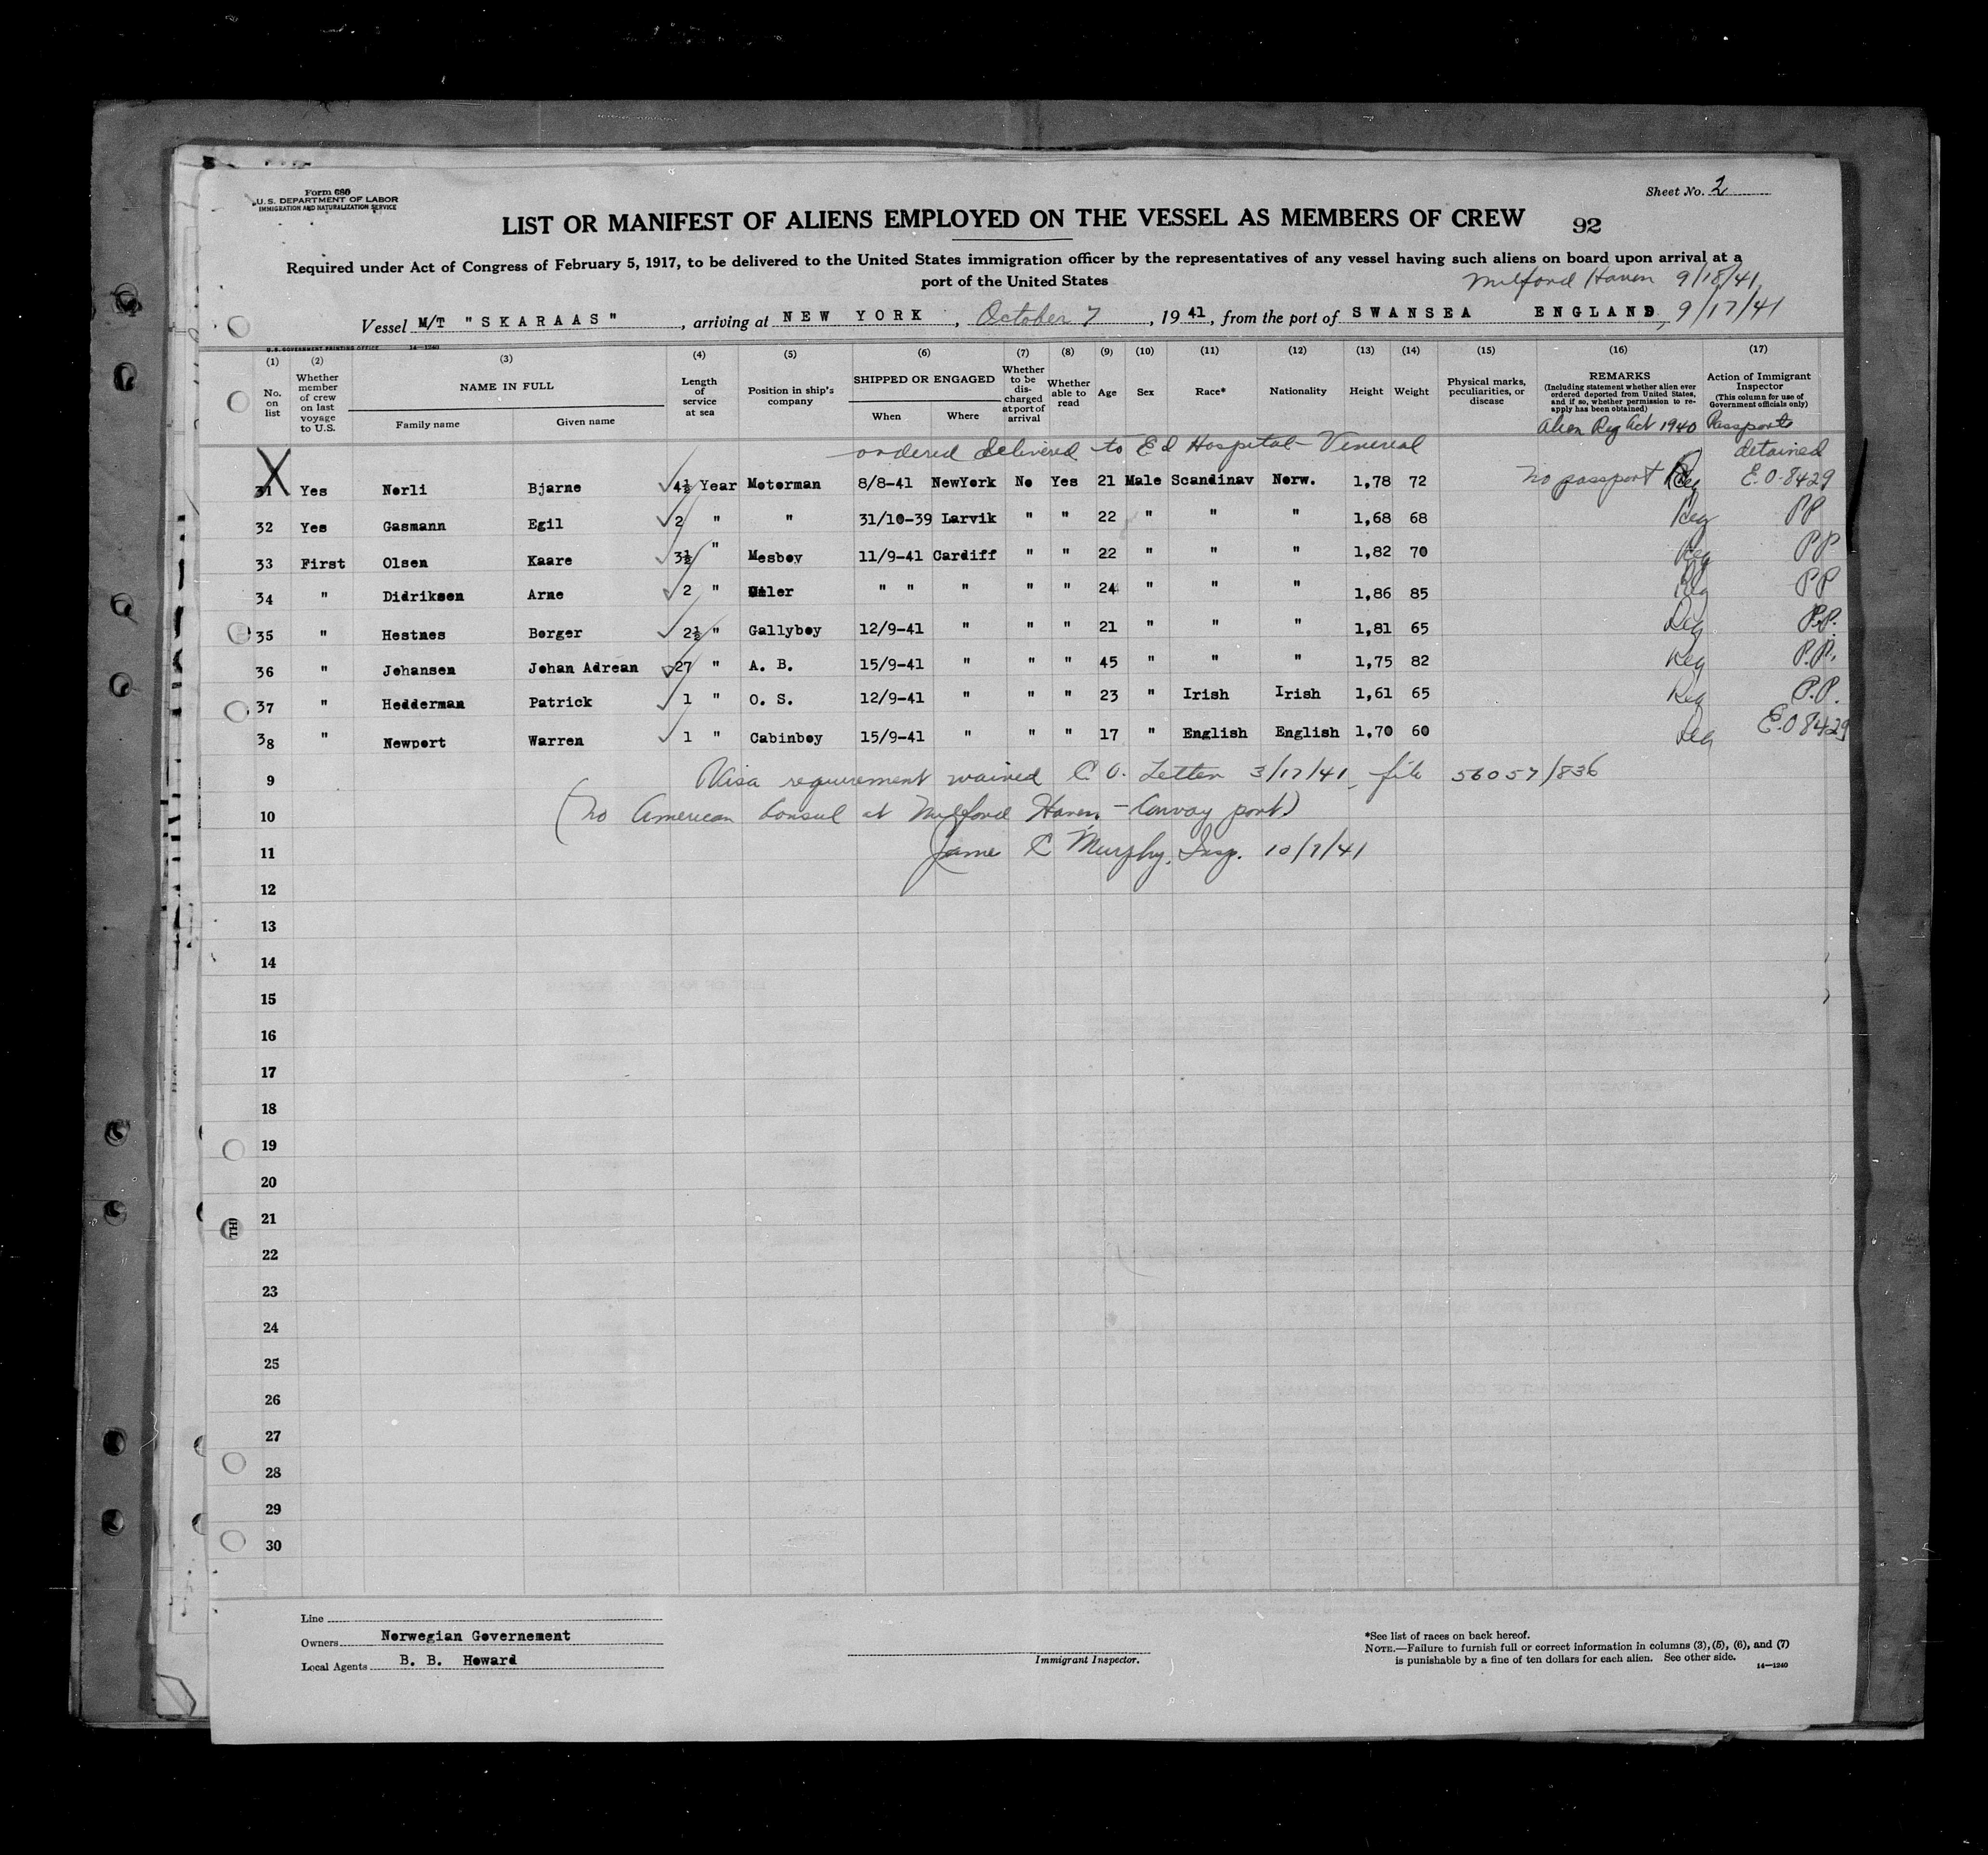 Form 680
U. S. DEPARTMENT OF LABOR
IMMIGRATION AND NATURALIZATION SERVICE
Sheet No. 2
LIST OR MANIFEST OF ALIENS EMPLOYED ON THE VESSEL AS MEMBERS OF CREW 92
Required under Act of Congress of February 5, 1917, to be delivered to the United States immigration officer by the representatives of any vessel having such aliens on board upon arrival at a
port of the United States
Milford Haven 9/18/41
Vessel M/T "SKARAAS", arriving at NEW YORK, October 7, 19 41, from the port of SWANSEA ENGLAND, 9/17/41
U. S. GOVERNMENT PRINTING OFFICE 14—1240
(1) (2) (3) (4) (5) (6) (7) (8) (9) (10) (11) (12) (13) (14) (15) (16) (17)
No. on list
Whether member of crew on last voyage to U.S.
NAME IN FULL
Family name Given name
Length of service at sea
Position in ship's company
SHIPPED OR ENGAGED
When Where
Whether to be discharged at port of arrival
Whether able to read
Age
Sex
Race*
Nationality
Height
Weight
Physical marks, peculiarities, or disease
REMARKS
(Including statement whether alien ever ordered deported from United States, and if so, whether permission to reapply has been obtained)
Alien Reg Act 1940
Action of Immigrant Inspector
(This column for use of Government officials only)
Passports
ordered delivered to Ed Hospital - Venereal detained
X
31 Yes Norli Bjarne 4½ Year Motorman 8/8-41 NewYork No Yes 21 Male Scandinav Norw. 1,78 72 No passport Reg E.O. 8429
32 Yes Gasmann Egil 2 " " 31/10-39 Larvik " " 22 " " " 1,68 68 Reg PP
33 First Olsen Kaare 3½ " Mesboy 11/9-41 Cardiff " " 22 " " " 1,82 70 Reg PP
34 " Didriksen Arne 2 " Oiler " " " " " 24 " " " 1,86 85 Reg PP
35 " Hestnes Borger 2½ " Gallyboy 12/9-41 " " " 21 " " " 1,81 65 Reg P.P.
36 " Johansen Johan Adrean 27 " A. B. 15/9-41 " " " 45 " " " 1,75 82 Reg P.P.
37 " Hedderman Patrick 1 " O. S. 12/9-41 " " " 23 " Irish Irish 1,61 65 Reg P.P.
38 " Newport Warren 1 " Cabinboy 15/9-41 " " " 17 " English English 1,70 60 Reg E.O 8429
9 Visa requirement waived C.O. Letter 3/17/41, file 56057/836
10 (No American Consul at Milford Haven, - Convoy port)
11 James C Murphy, Insp. 10/7/41
12
13
14
15
16
17
18
19
20
21
22
23
24
25
26
27
28
29
30
Line
Owners Norwegian Governement
Local Agents B. B. Howard
Immigrant Inspector.
*See list of races on back hereof.
NOTE.—Failure to furnish full or correct information in columns (3), (5), (6), and (7)
is punishable by a fine of ten dollars for each alien. See other side.
14—1240